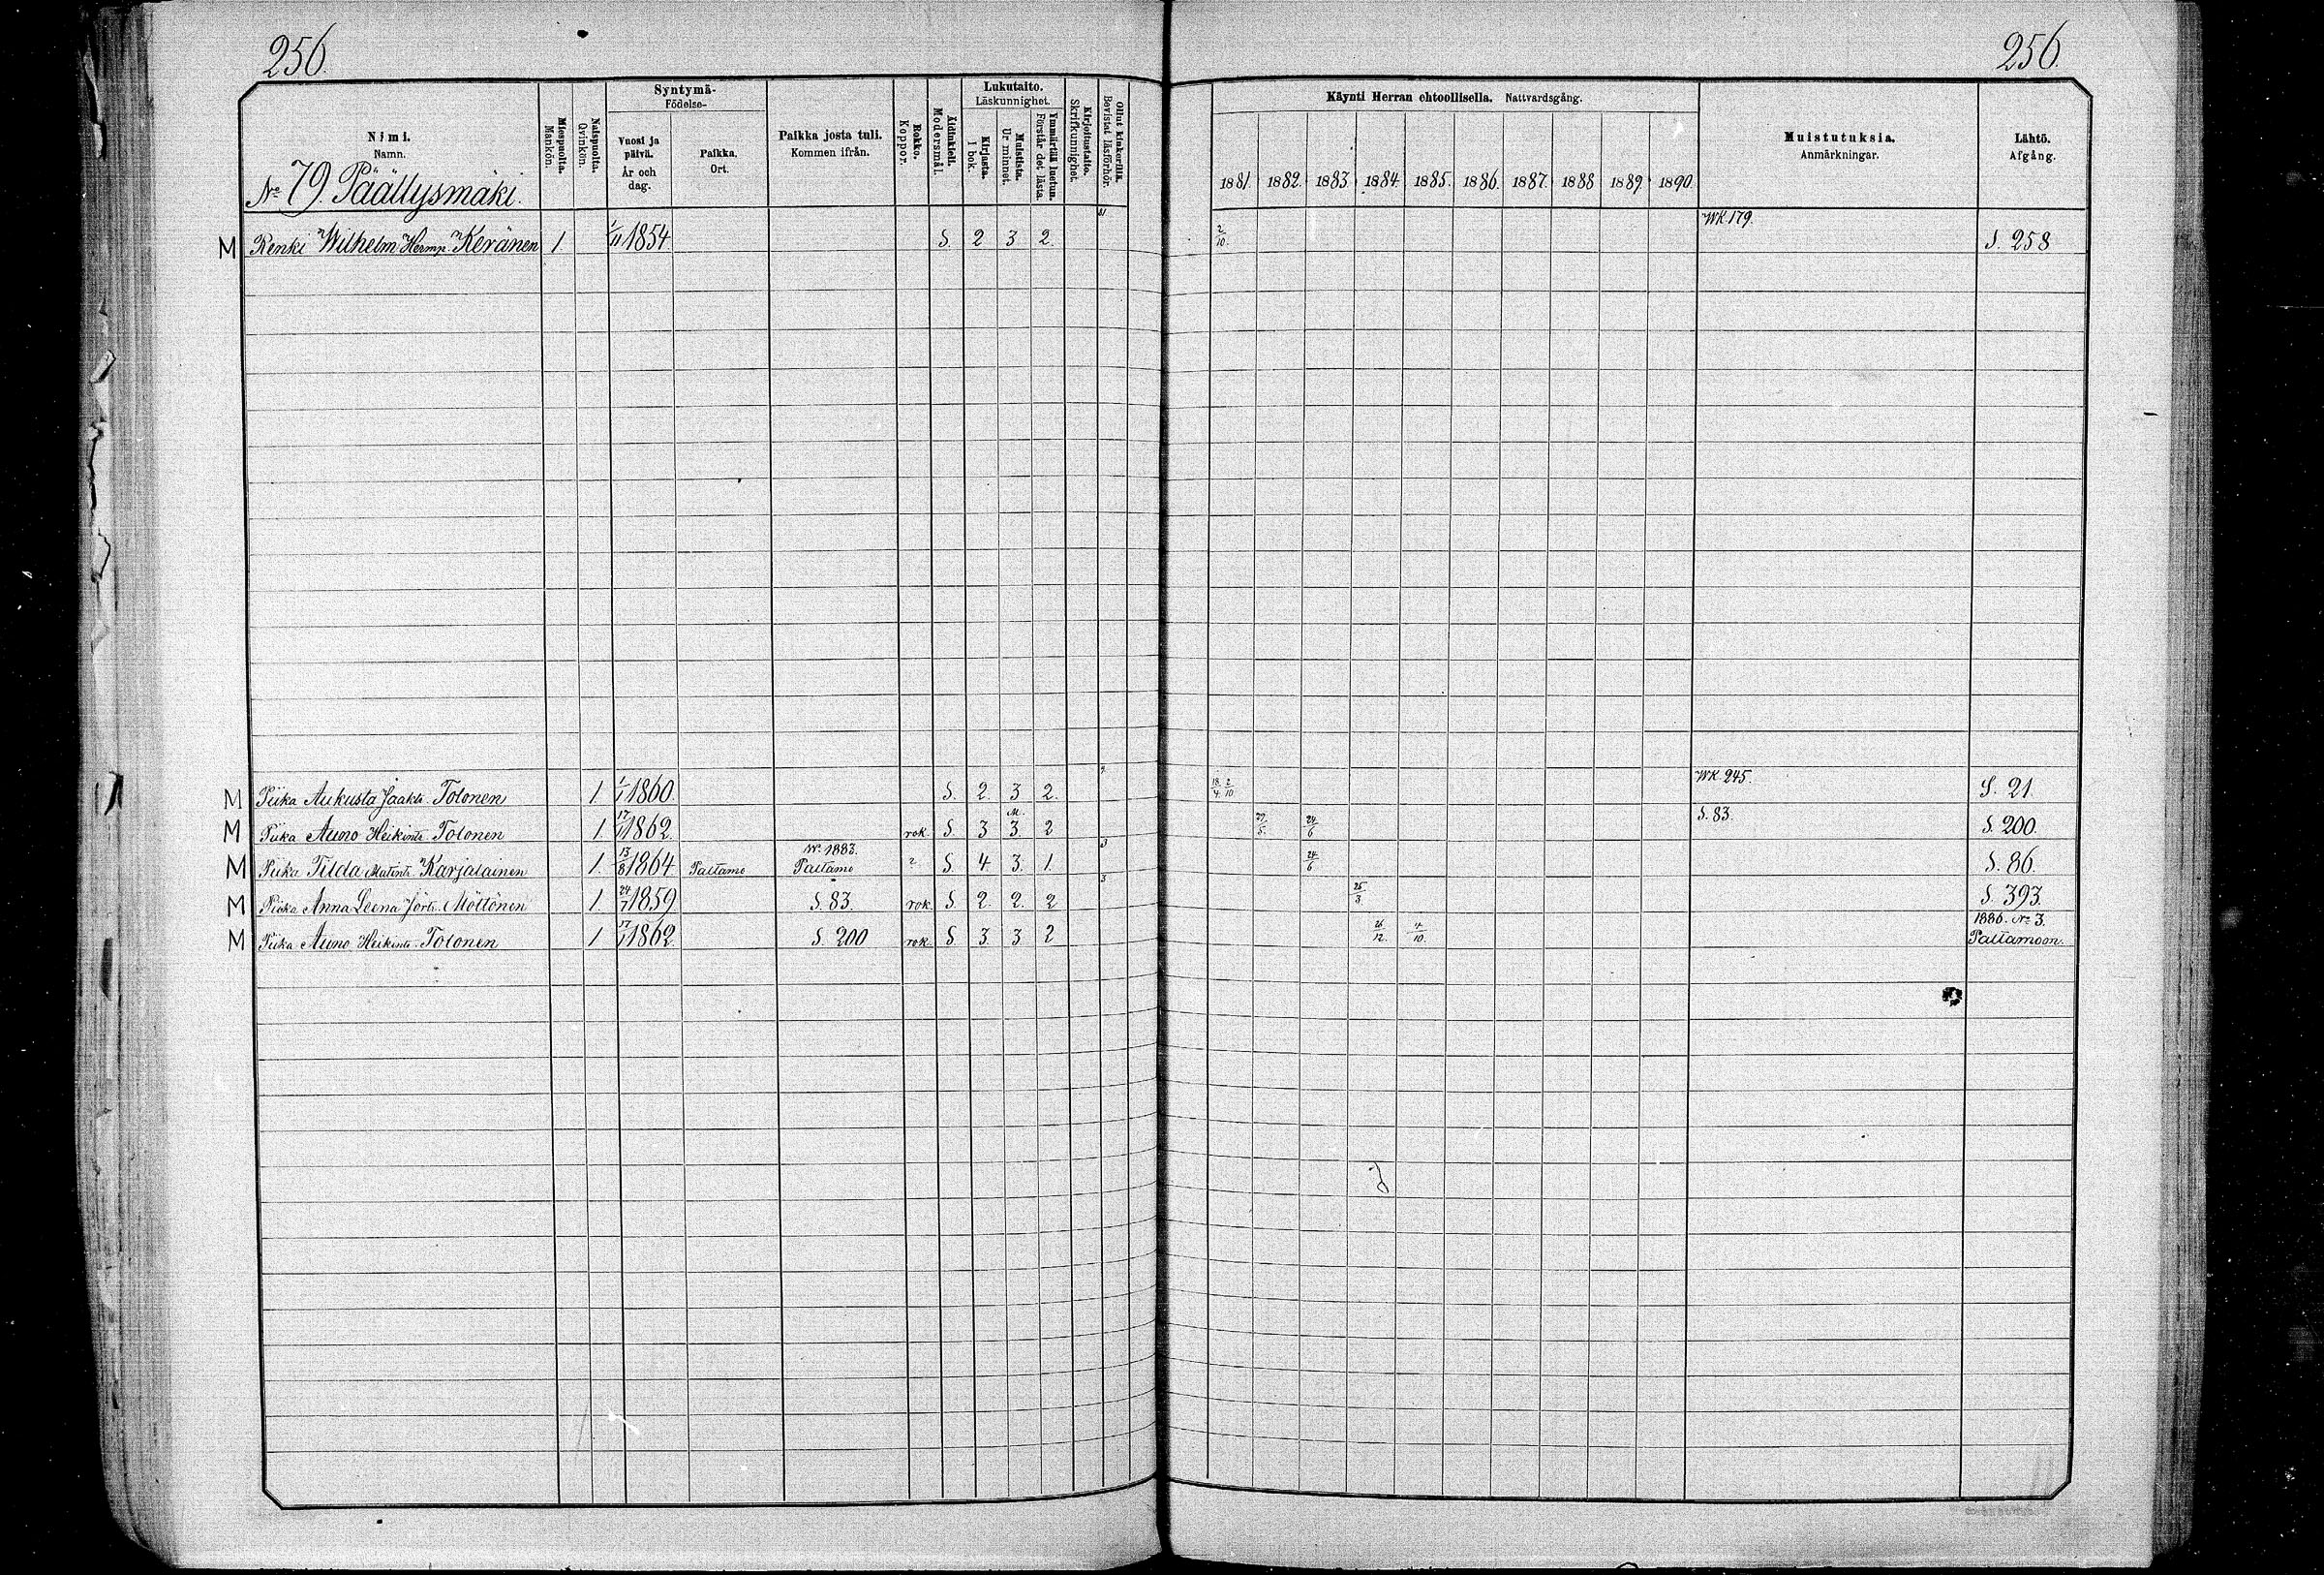 256.
256.
Nimi. Namn.
Miespuolta. Mankön.
Naispuolta. Qvinkön.
Syntymä- Födelse-
Vuosi ja päivä. År och dag.
Paikka. Ort.
Paikka josta tuli. Kommen ifrån.
Rokko. Koppor.
Äidinkieli. Modersmål.
Lukutaito. Läskunnighet.
Kirjasta. I bok.
Muistista. Ur minnet.
Ymmärtää luetun. Förstår det lästa.
Kirjoitustaito. Skrifkunnighet.
Ollut kinkerillä. Bevistat läsförhör.
Käynti Herran ehtoollisella. Nattvardsgång.
1881 1882. 1883. 1884. 1885. 1886. 1887. 1888 1889 1890.
Muistutuksia. Anmärkningar.
Lähtö. Afgång.
No 79. Päällysmäki.
M Renki Wilhelm Hermp. Keränen 1. 1/11 1854 S. 2 3 2. 81 2/10. WK 179. S. 258
M Piika Aukusta Jaakt. Tolonen 1. 1/1 1860. S. 2. 3 2. 18/4. 2/10 WK 245. S. 21.
M Piika Auno Heikint. Tolonen 1. 17/1 1862. rok. S. 3 3. 2 24/6 S. 83. S. 200.
M Piika Tilda Matint. Karjalainen 1. 13/8 1864 Paltamo No 1883. Paltamo ? S. 4 3. 1. 24/6 S. 86.
M Piika Anna Leena Jört. Möttönen 1. 24/7 1859 S. 83. rok. S. 2. 2. 2 3 25/3 S. 393.
M Piika Auno Heikint. Tolonen 1 17/1 1862. S. 200 rok. S. 3. 3 2 26/12. 4/10. 1886. No 3. Paltamoon.